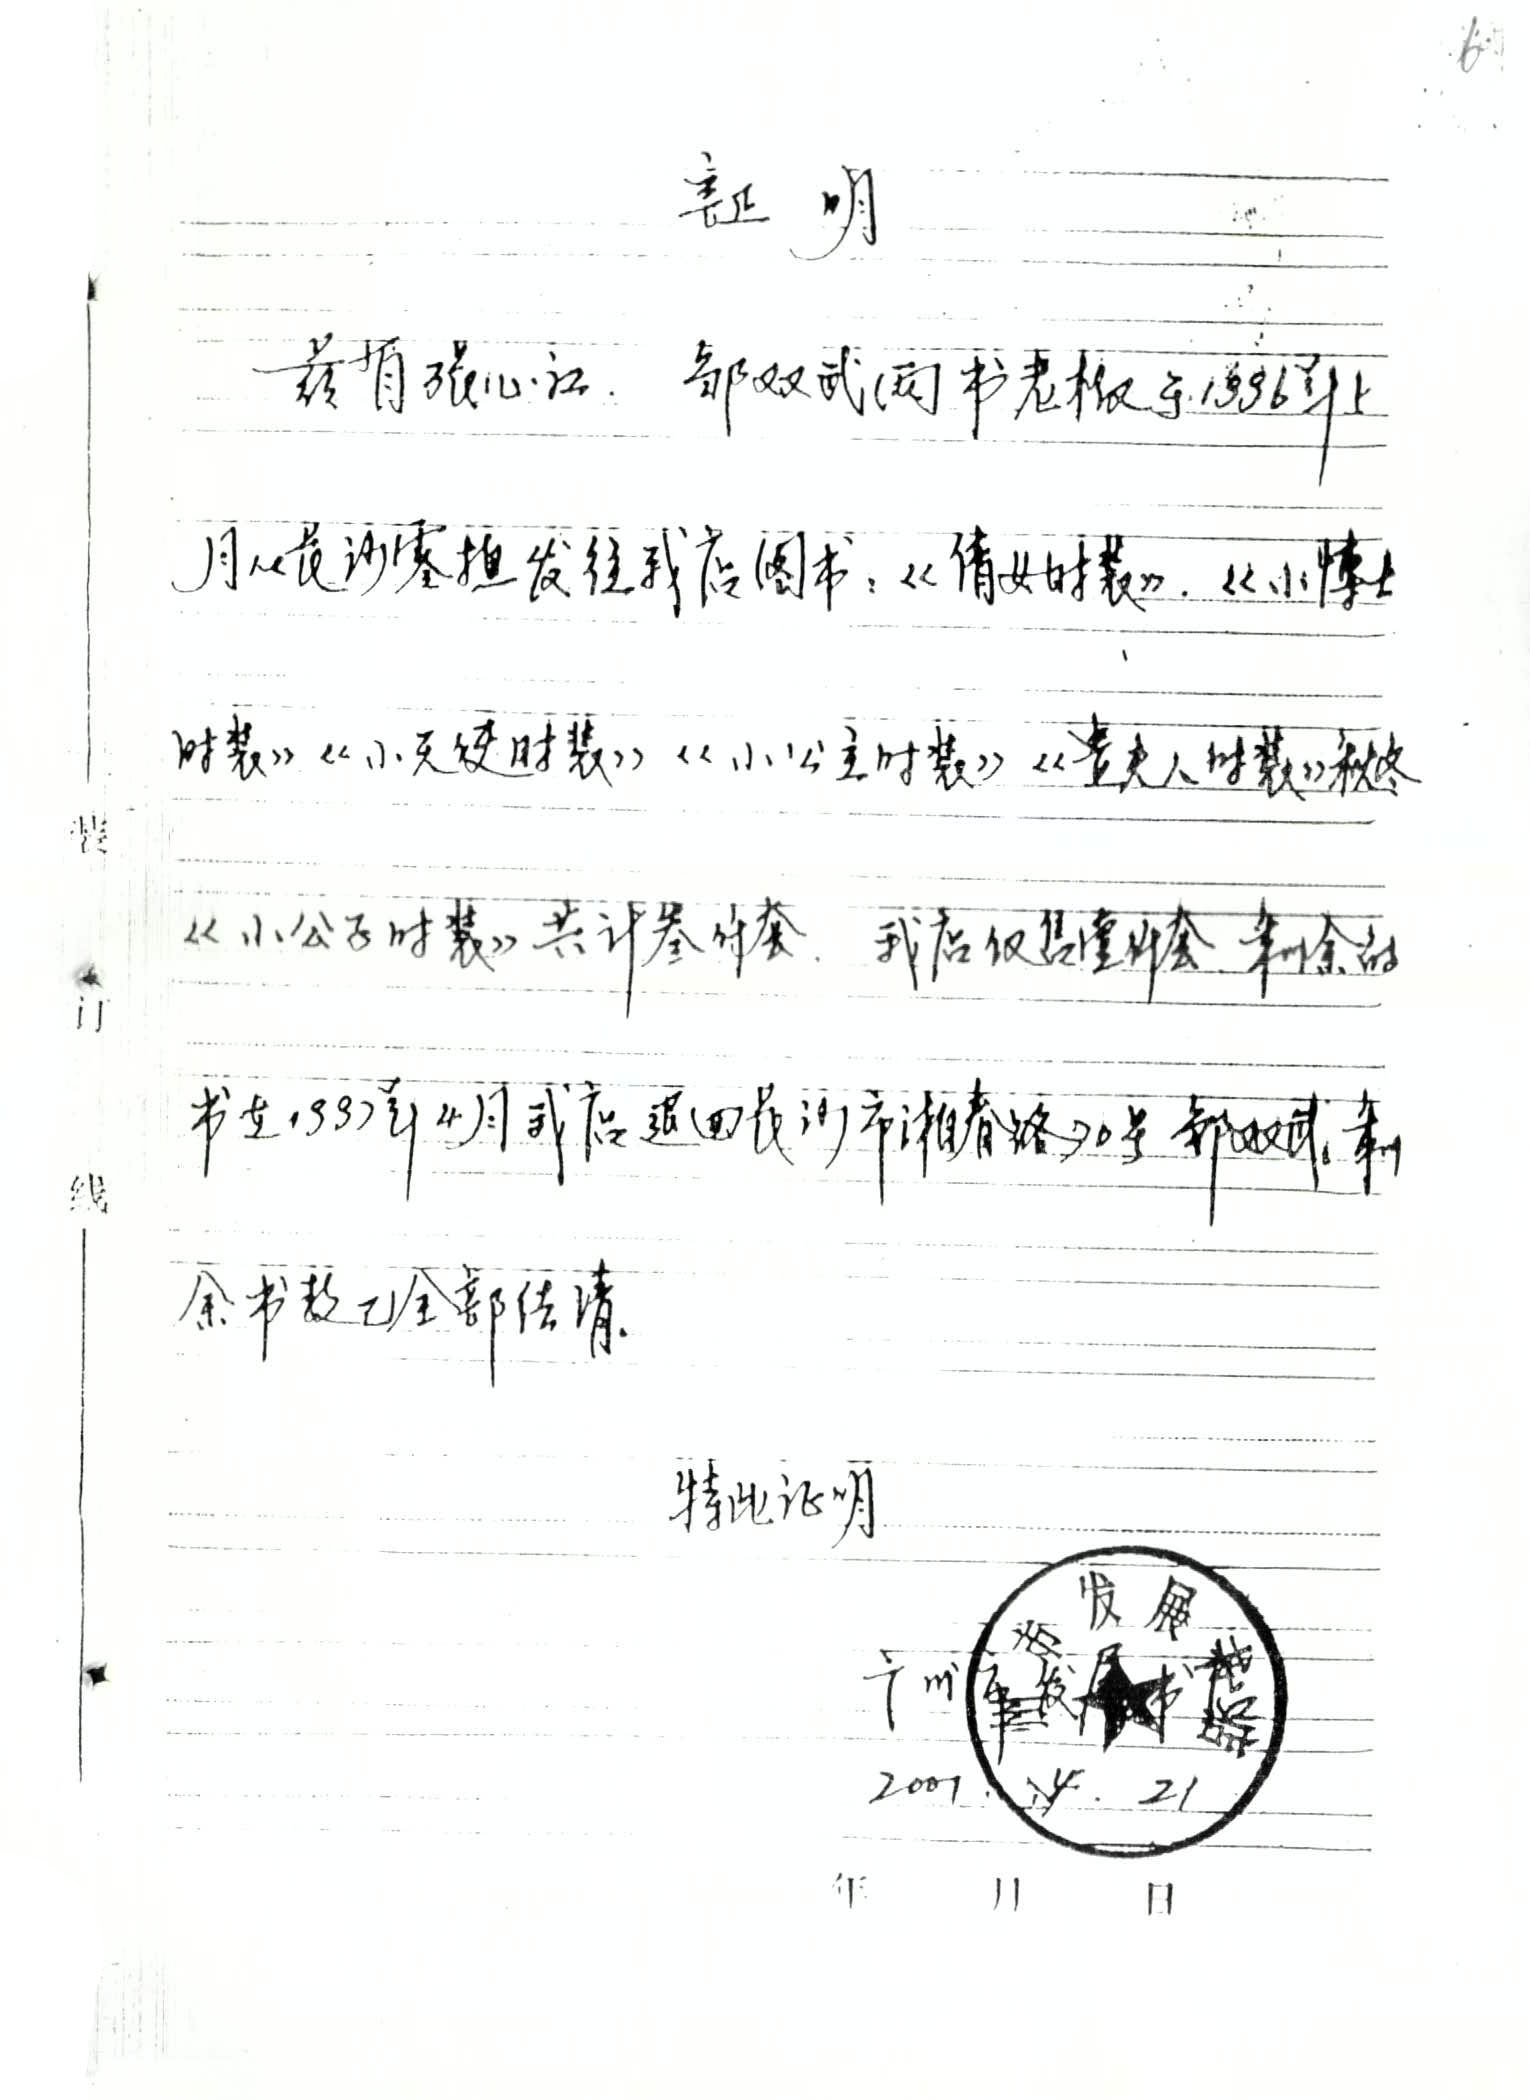 6
証明
兹有张心江. 邹双武(两书老板于1996年上
月从长沙塞担发往我店图书:《倩女时装》.《小博士
时装》《小天使时装》《小公主时装》《贵夫人时装》秋冬
《小公子时装》共计叁仟套. 我店仅售壹仟套 剩余的
书在1997年4月我店退回长沙市湘春路70号邹双武。剩
余书款已全部结清.
特此证明
广州市发展书
2001.4.21
发展
年 月 日
装
订
线